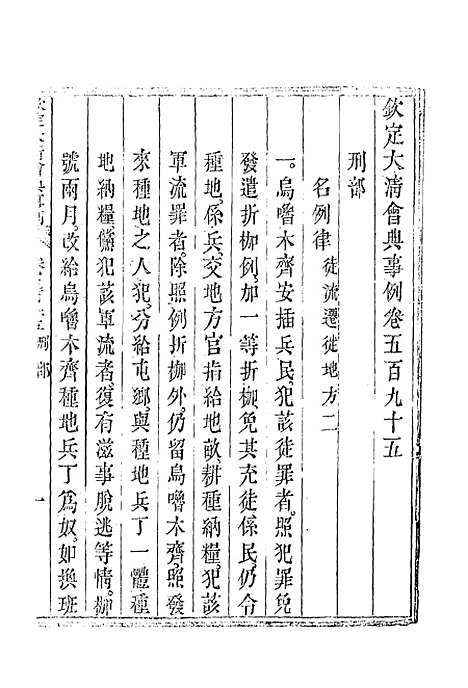 欽定大清會典事例卷五百九十五
刑部
名例律徒流遷徙地方二
一。烏嚕木齊安插兵民。犯該徒罪者。照犯罪免
發遣折枷例。加一等折枷。免其充徒。係民。仍令
種地。係兵。交地方官指給地畝。耕種納糧。犯該
軍流罪者。除照例折枷外。仍留烏嚕木齊。照發
來種地之人犯。分給屯鄉。與種地兵丁一體種
地納糧。儻犯該軍流者。復有滋事脫逃等情。枷
號兩月。改給烏嚕木齊種地兵丁為奴。如換班
一